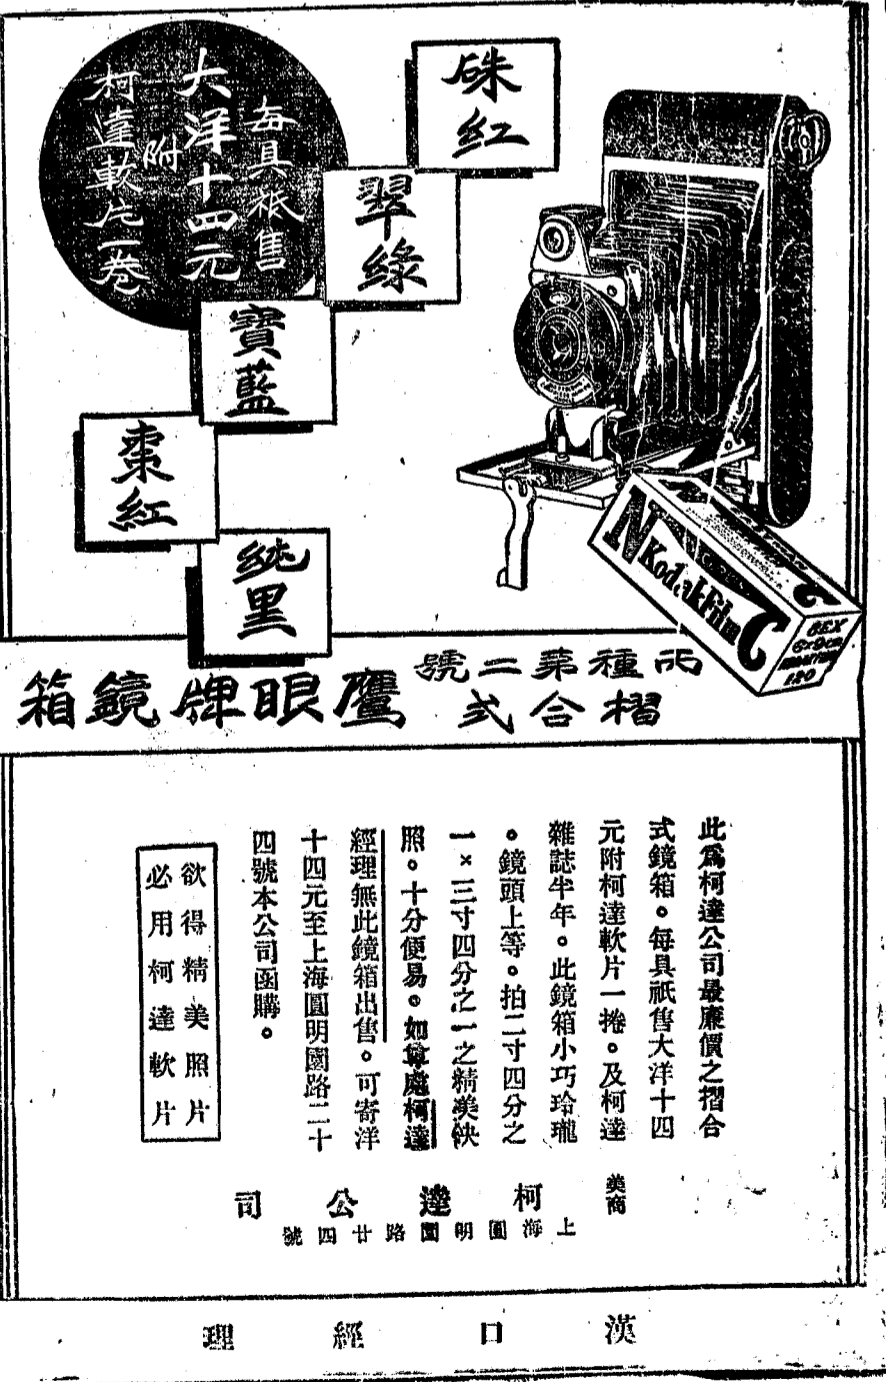 每具祇售
大洋十四元
附
柯達軟片一卷
硃紅
翠綠
寶藍
棗紅
純黑
N
Kodak Film
C
6EX
120
兩種第二號
摺合式
鷹眼牌鏡箱
此爲柯達公司最廉價之摺合
式鏡箱。每具祇售大洋十四
元附柯達軟片一捲。及柯達
雜誌半年。此鏡箱小巧玲瓏
。鏡頭上等。拍二寸四分之
一×三寸四分之一之精美快
照。十分便易。如尊處柯達
經理無此鏡箱出售。可寄洋
十四元至上海圓明園路二十
四號本公司函購。
欲得精美照片
必用柯達軟片
美商
柯達公司
上海圓明園路廿四號
漢口經理